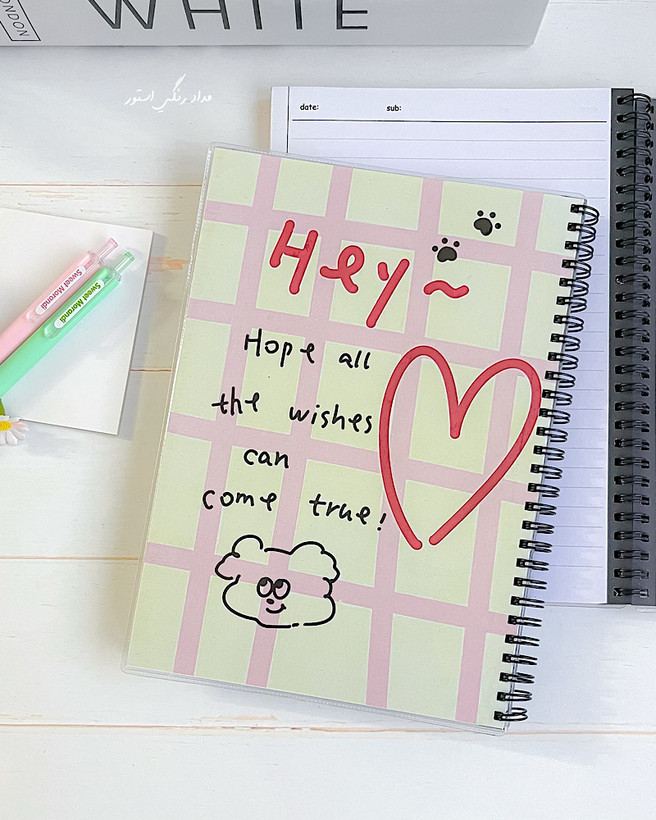 LONDON
WHITE
مداد رنگی استور
date: sub:
Hey~
Hope all
the wishes
can
come true!
Sweet Morandi
Sweet Morandi